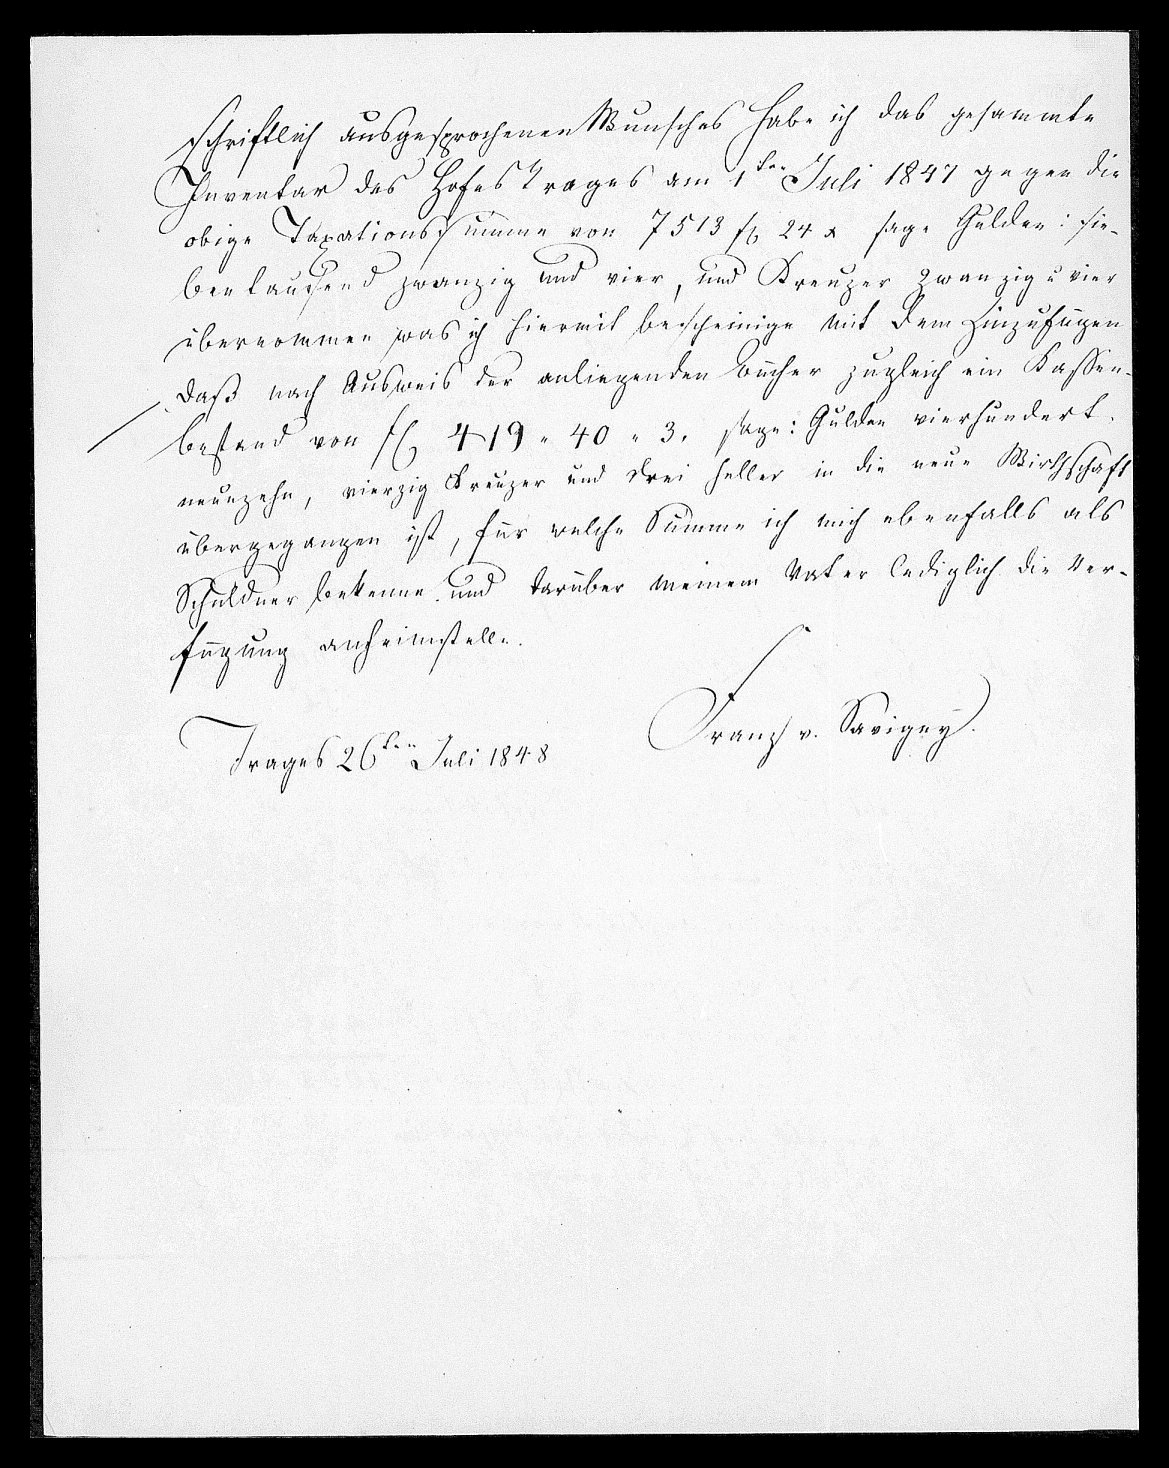 schriftlich ausgesprochenen Wunsches habe ich das gesammte
Inventar des Hofes Trages am 1ten Juli 1847 gegen die
obige Taxationssumme von 7513 fl 24 x sage Gulden: sie-
bentausend zwanzig und vier, und Kreuzer zwanzig u vier
übernommen was ich hiermit bescheinige mit dem Hinzufügen
daß nach Ausweis der anliegenden Bücher zugleich ein Kassen-
bestand von fl 419 " 40 " 3. sage: Gulden vierhundert
neunzehn, vierzig Kreuzer und drei Heller in die neue Wirthschaft
übergegangen ist, für welche Summe ich mich ebenfalls als
Schuldner bekenne und darüber meinem Vater lediglich die Ver-
fügung anheimstelle.
Franz v. Savigny.
Trages 26ten Juli 1848